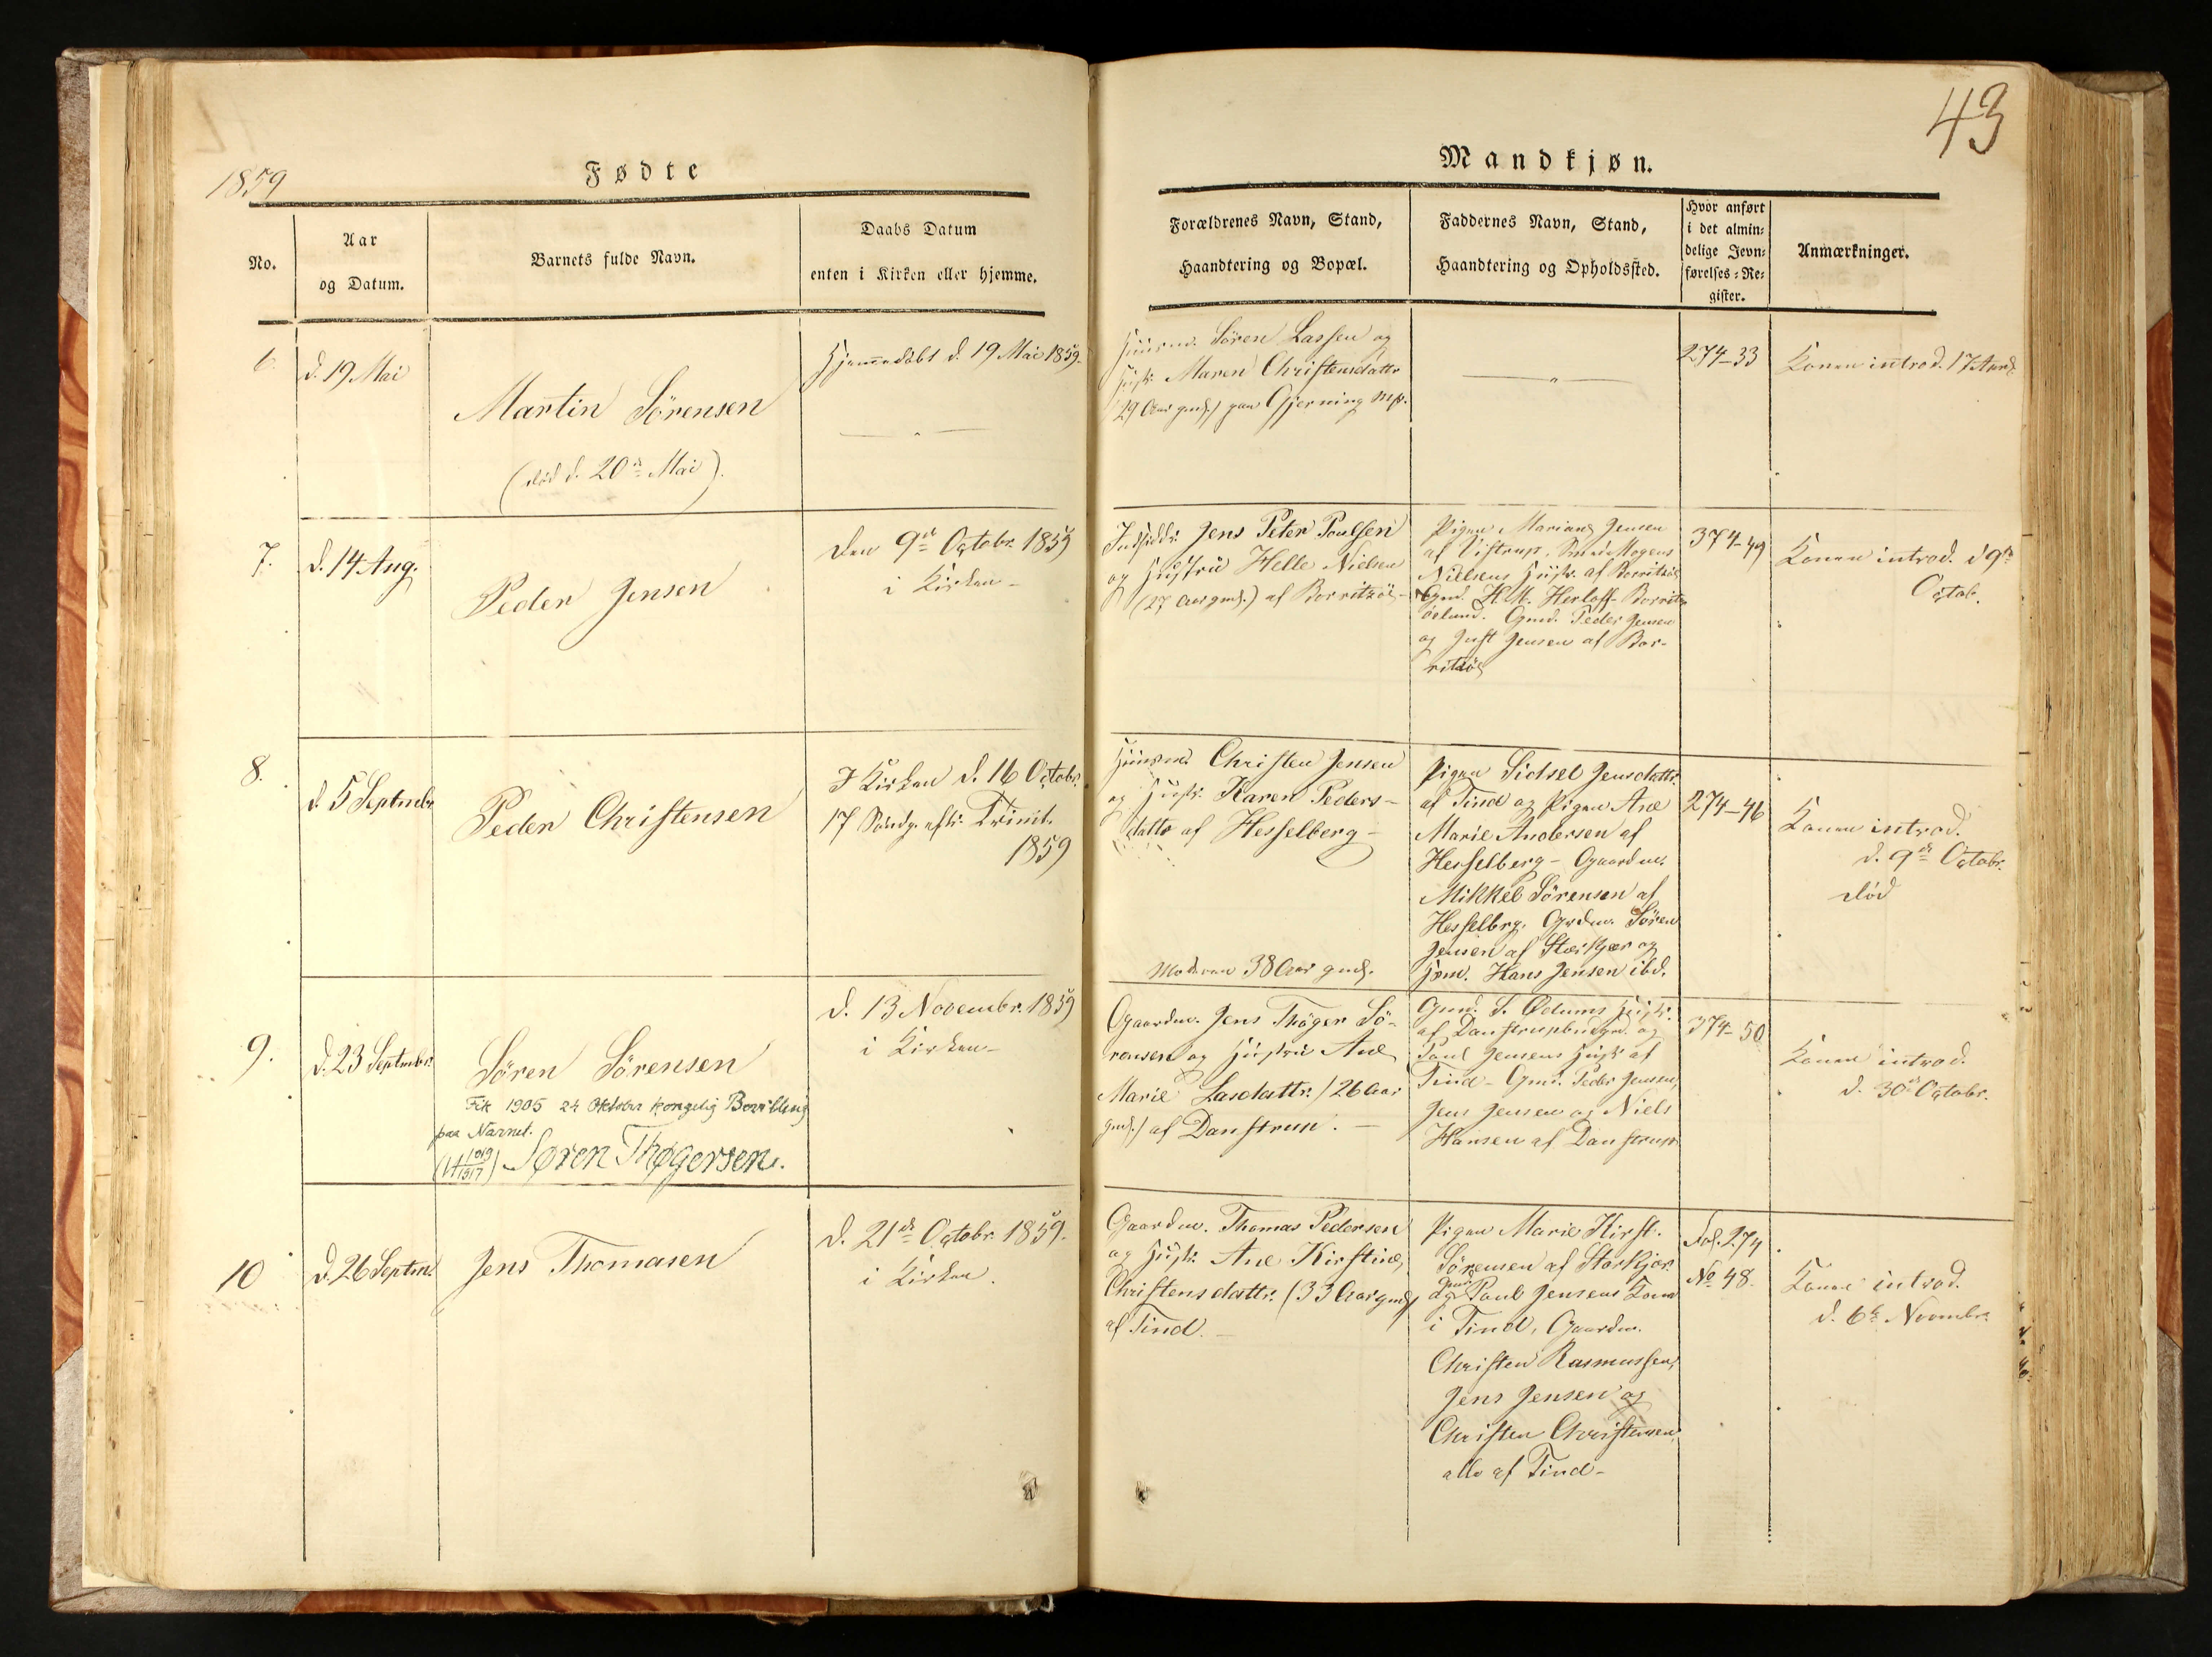 43
1859
Fødte
Mandkjøn.
No.
Aar
og Datum.
Barnets fulde Navn.
Daabs Datum
enten i Kirken eller hjemme.
Forældrenes Navn, Stand,
Haandtering og Bopæl.
Faddernes Navn, Stand,
Haandtering og Opholdssted.
Hvor anført
i det almin-
delige Jevn-
førelses-Re-
gister.
Anmærkninger.
6.
d. 19 Mai
Martin Sörensen
(död d. 20de Mai).
Hjemmedöbt d. 19 Mai 1859.
Huusmd. Sören Lassen og
Hustr. Maren Christensdattr
(29 Aar gml.) paa Gjerning
274-33
Konen introd. 17
7.
d. 14 Aug.
Peder Jensen
Den 9de Octobr. 1859
i Kirken
Indsidder Jens Peter Poulsen
og Hustru Helle Nielsen
(27 Aar gml.) af Borritzö
Pigen Mariane Jensen
af Vistrup, Mogens
Nielsens Hustr. af Borritzö
Gmd. H. M. Herloff-Borritz
ölund. Gmd. Peder Jensen
og Just Jensen af Bor-
ritzö
374-49
Konen introd. d 9de
Octob.
8.
d. 5 Septmbr
Peder Christensen
I Kirken d. 16 Octobr.
17 Söndg. eftr. Trinit.
1859
Huusmd. Christen Jensen
og Hustr. Karen Peders-
datte af Hesselberg
Moderen 38 Aar gml.
Pigen Sidsel Jensdattr.
af Tind og Pigen Ane
Marie Andersen af
Hesselberg - Gaardm.
Mikkel Sörensen af
Hesselbrg. Grdm. Sören
Jensen af Storkjær og
Hans Jensen ibd.
274-46
Konen introd.
d. 9de Octobr.
död
9.
d. 23 Septmbr.
Sören Sörensen
Fik 1905 24 Oktober kongelig Bevilling
paa Navnet.
Søren Thøgersen.
d. 13 Novembr. 1859
i Kirken
Gaardm. Jens Thöger Sö-
rensen og Hustru Ane
Marie Lasdattr. (26 Aar
gml.) af Danstrup.
Gmd. S. Ödums Hustr.
af Danstrup og
Poul Jensens Hustr af
Tind - Gmd. Peder Jensen,
Jens Jensen og Niels
Hansen af Danstrup
374-50
Konen introd.
d. 30 Octobr.
10
d. 26 Septm.
Jens Thomasen
d. 21de Octobr. 1859.
i Kirken.
Gaardm. Thomas Pedersen
og Hustr. Ane Kirstine
Christensdattr. (33 Aar gml)
af Tind.
Pigen Marie Kirst.
Sörensen af Storkjær
og Gmd. Poul Jensens Kone
i Tind, Gaardm.
Christen Rasmussen,
Jens Jensen og
Christen Christensen,
alle af Tind-
Fol. 274
No 48.
Konen introd.
d. 6te Novmbr.